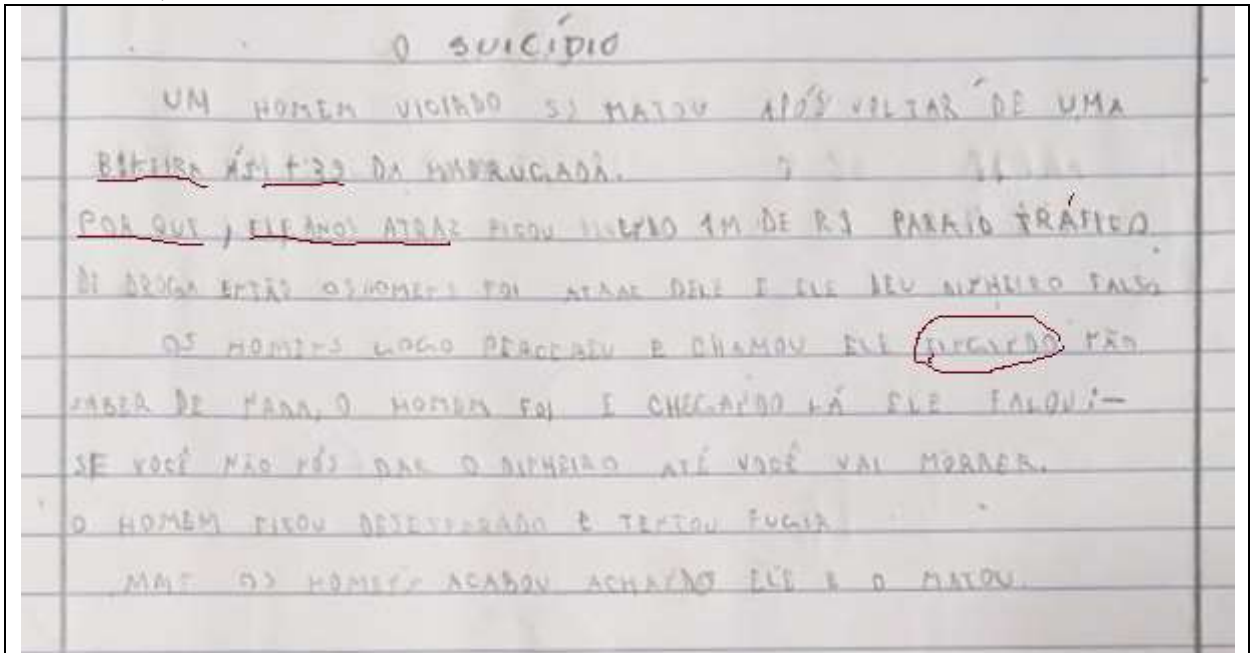 O SUICÍDIO
UM HOMEM VICIADO SI MATOU APÓS VOLTAR DE UMA
DA MADRUGADA.
POR QUE, ELE ANOS ATRAZ FICOU 1M DE R$ PARA O TRÁFICO
DI DROGA ENTÃO OS HOMENS FOI ATRAZ DELE E ELE DEU DINHEIRO FALSO
OS HOMENS LOGO PERCEBEU E CHAMOU ELE NÃO
SABER DE NADA, O HOMEM FOI E CHEGANDO LÁ ELE FALOU:-
SE VOCÊ NÃO NÓS DAR O DINHEIRO ATÉ VOCÊ VAI MORRER.
O HOMEM FICOU DESESPERADO E TENTOU FUGIR
OS HOMENS ACABOU ACHANDO ELE E O MATOU.